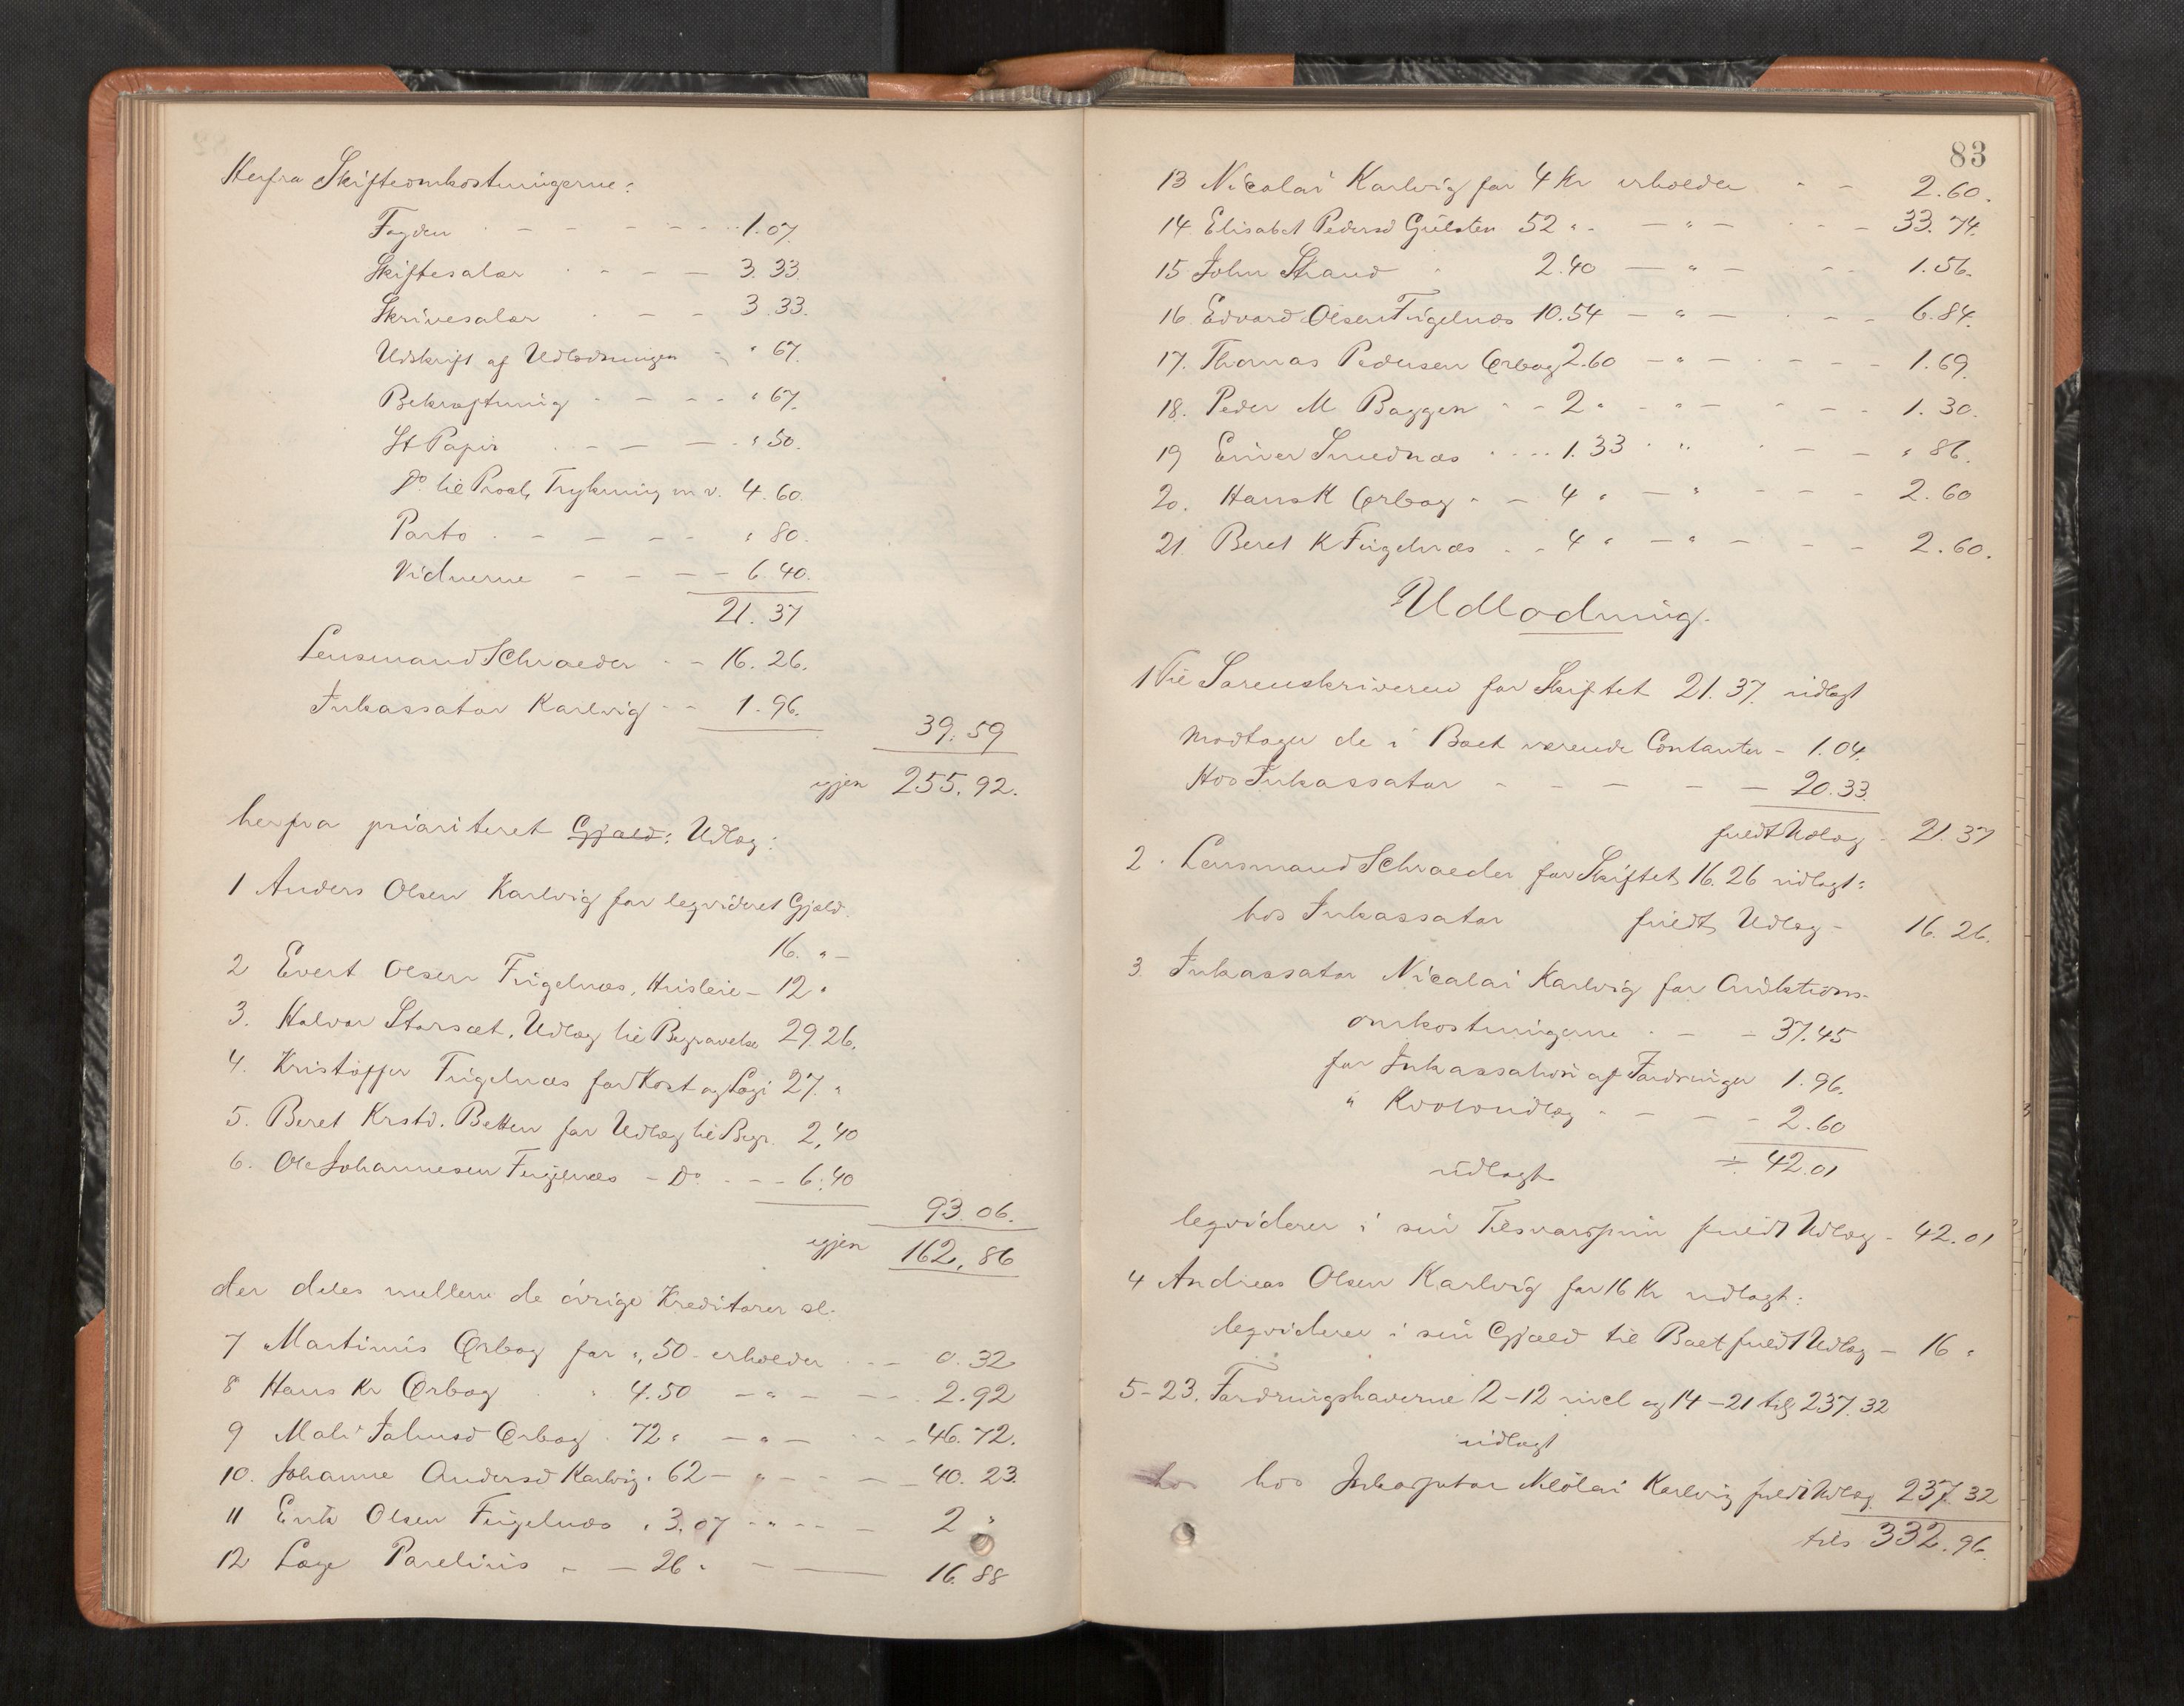 Herfra Skifteomkostningerne:
Fogden - - - - - - 1.07.
Skiftesalær - - - 3.33
Skrivesalær - - - 3.33.
Udskrift af Udlodningen - " 67.
Bekræftning - - - - " 67.
St Papir - - - - " 50.
Do til Procl, Trykning m v. 4.60.
Porto - - - - - " 80.
Vidnerne - - - - 6.40.
21.37
Lensmand Schraeder - - 16.26.
Inkassator Karlvig - - 1.96.
39.59
igjen 255.92.
herfra prioriteret Gjæld: Udlæg:
1 Anders Olsen Karlvig for leqvideret Gjæld.
16. " -
2 Evert Olsen Fugelnæs, Husleie - 12 "
3. Halvor Storsæt. Udlæg til Begravelse 29.26.
4. Kristoffer Fugelnæs for Kost og Logi 27. "
5. Beret Krstd. Betten for Udlæg til Begr. 2,40
6. Ole Johannesen Fugelnæs - Do - - - 6.40
93.06.
igjen 162,86
der deles mellem de øvrige Kreditorer sl.
7 Martinus Ørbog for ", 50 - erholder - - 0.32
8 Hans Kr Ørbog " 4.50 - " - - - 2.92
9 Mali Johnsd Ørbog . 72 " - " - - - 46.72.
10. Johanne Andersd Karlvig " 62 - " - - - 40.23.
11 Erik Olsen Fugelnæs " 3.07 - " - - - 2 "
12 Lage Parelius " - 26 " - - 16.88
83
13 Nicolai Karlvig for 4 Kr erholder - - 2.60.
14 Elisabet Pedersd Gulsten 52 " - - " - - - - 33.74.
15 John Strand " 2.40 - " - - - 1.56.
16 Edvard Olsen Fugelnæs 10.54 - " - - - - 6.84.
17. Thomas Pedersen Ørbog 2.60 - " - - - - 1.69.
18. Peder M Baggen - - 2 " - " - - - - 1.30.
19 Einer Smednæs - - - 1.33 - " - - - " 86.
20. Hans K Ørbog " - 4 " - " - - - 2.60
21. Beret K Fugelnæs - - 4 " - " - - - 2.60.
Udlodning.
1 Til Sorenskriveren for Skiftet 21.37. udlagt
modtager de i Boet værende Contanter - 1.04.
Hos Inkassator - - - - - 20.33.
fuldt Udlæg - 21.37
2. Lensmand Schraeder for Skiftet 16.26 udlagt:
hos Inkassator fuldt Udlæg - 16.26.
3. Inkassator Nicolai Karlvig for Auktions-
omkostningerne - - - 37.45
for Inkassation af Fordringer 1.96.
" - - - 2.60
÷ 42.01
udlagt
leqviderer i sin fuldt Udlæg - 42.01
4 Andreas Olsen Karlvig for 16 Kr udlagt:
leqviderer i sin Gjæld til Boet fuldt Udlæg - 16 "
5-23. Fordringshaverne 2-12 incl og 14-21 tils 237.32
udlagt
hos Inkassator Nikolai Karlvig fuldt Udlæg 237.32
tils 332.96.